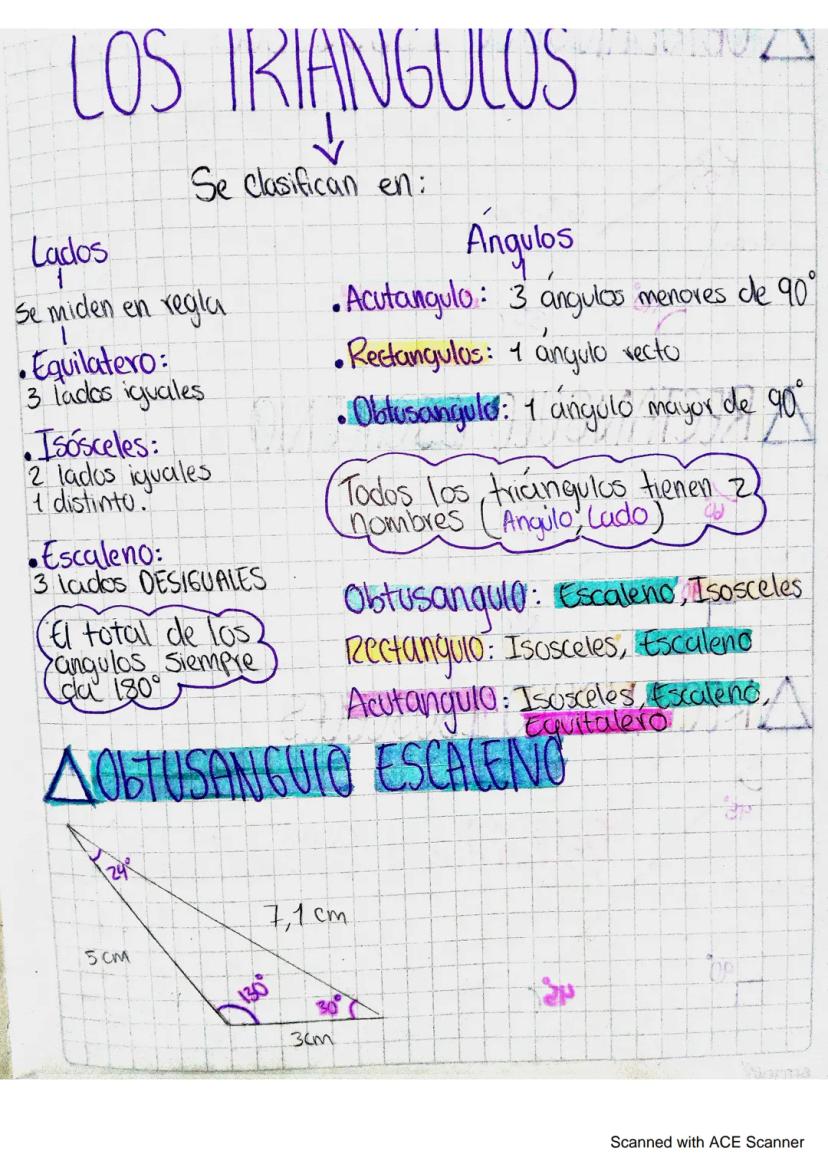 LOS TRIANGULOS
Se clasifican en:
Lados
Se miden en regla
• Equilatero:
3 lados iguales
• Isósceles:
2 lados iguales
1 distinto.
• Escaleno:
3 lados DESIGUALES
El total de los
angulos siempre
da 180°
Ángulos
• Acutangulo: 3 ángulos menores de 90°
• Rectangulos: 1 ángulo recto
• Obtusangulo: 1 ángulo mayor de 90°
Todos los triángulos tienen 2
nombres (Angulo, Lado)
Obtusangulo: Escaleno, Isosceles
Rectangulo: Isosceles, Escaleno
Acutangulo: Isosceles, Escaleno,
Equitalero
OBTUSANGULO ESCALENO
24°
7,1 cm
5 cm
130°
30°
3cm
Scanned with ACE Scanner